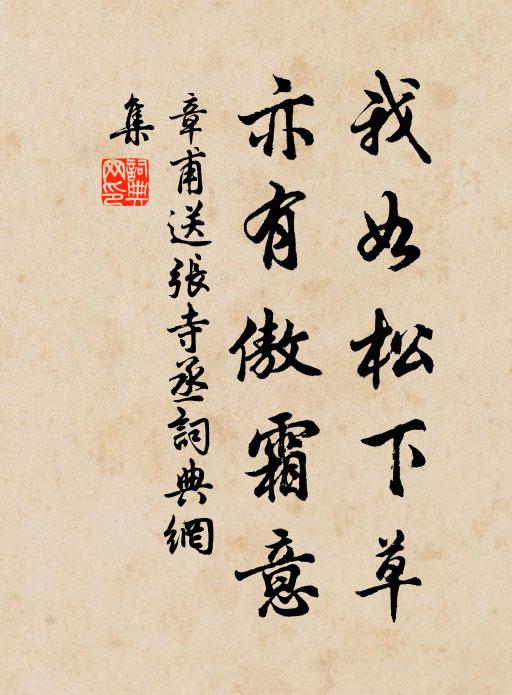 我如松下草
亦有傲霜意
章甫送張寺丞詞典網
集
詞典網印